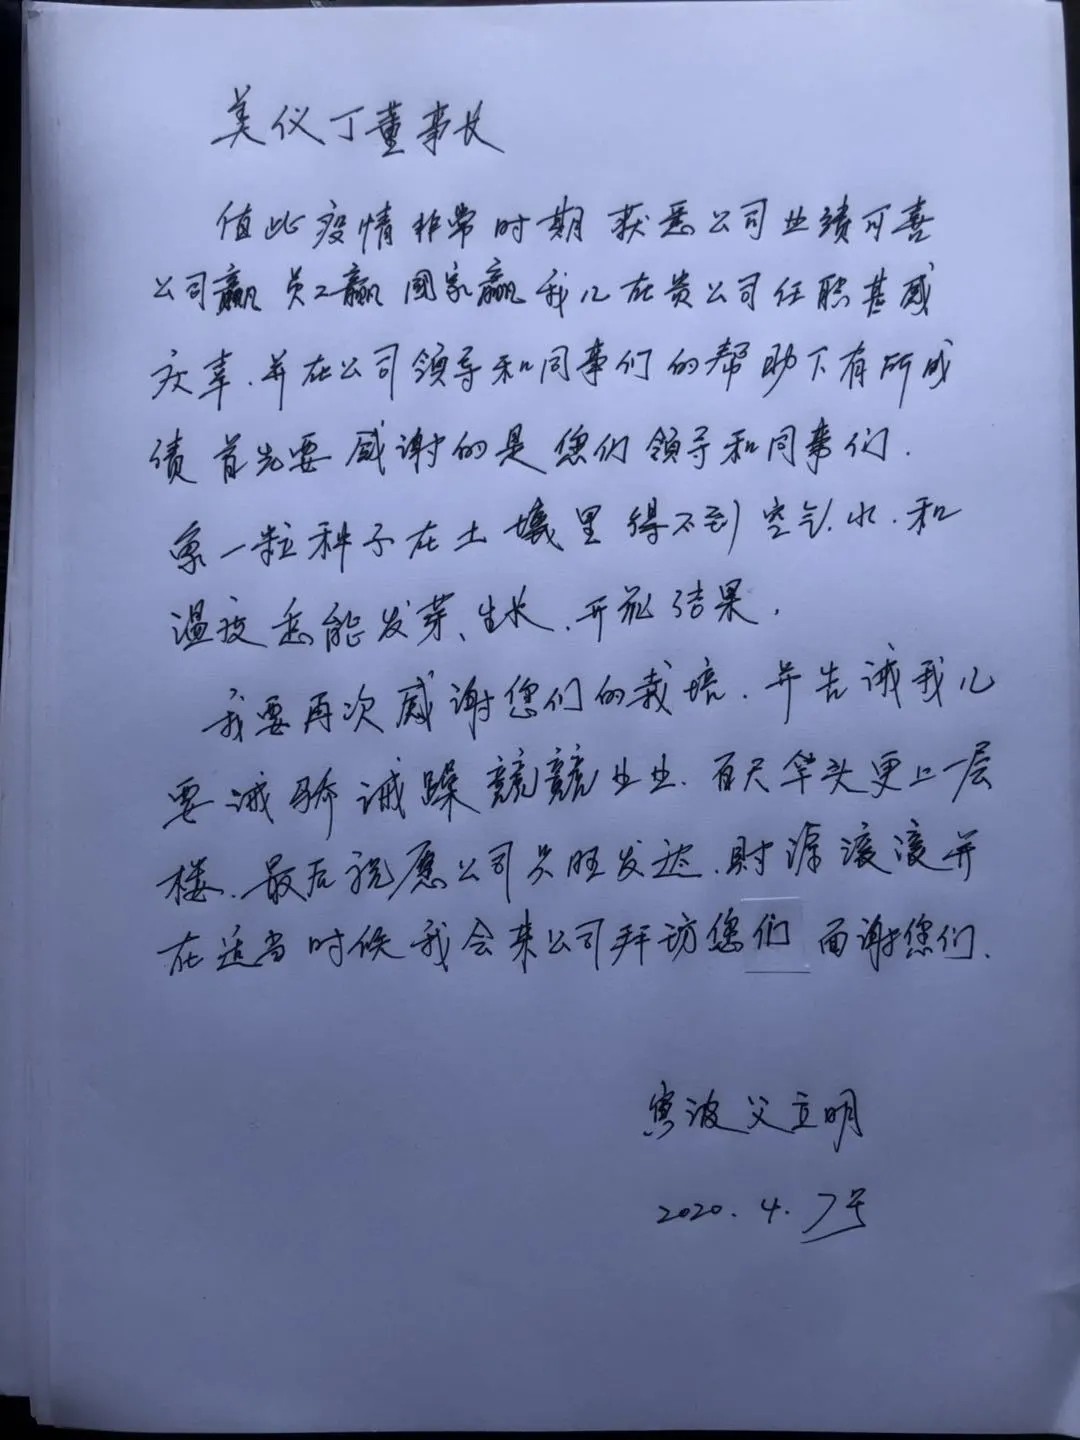 美仪丁董事长
值此疫情非常时期获悉公司业绩可喜
公司赢员工赢國家赢我儿在贵公司任职甚感
庆幸.并在公司领导和同事们的帮助下有所成
绩首先要感谢的是您们领导和同事们.
象一粒种子在土壤里得不到空气.水.和
温度怎能发芽、生长.开花结果.
我要再次感谢您们的栽培.并告诫我儿
要诫骄诫躁兢兢业业.百尺竿头更上一层
楼.最后祝愿公司兴旺发达.财源滚滚并
在适当时候我会来公司拜访您们面谢您们.
波父立明
2020.4.7号